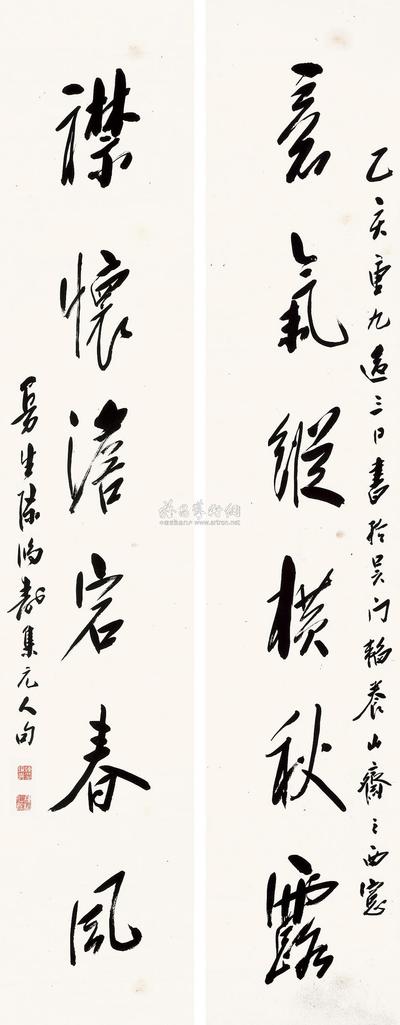 乙亥重九過三日書於吳门韜養山齋之西窻
意氣縱橫秋露
襟懷澹宕春風
曼生陳鴻壽集元人句
雅昌藝術網
www.artron.net